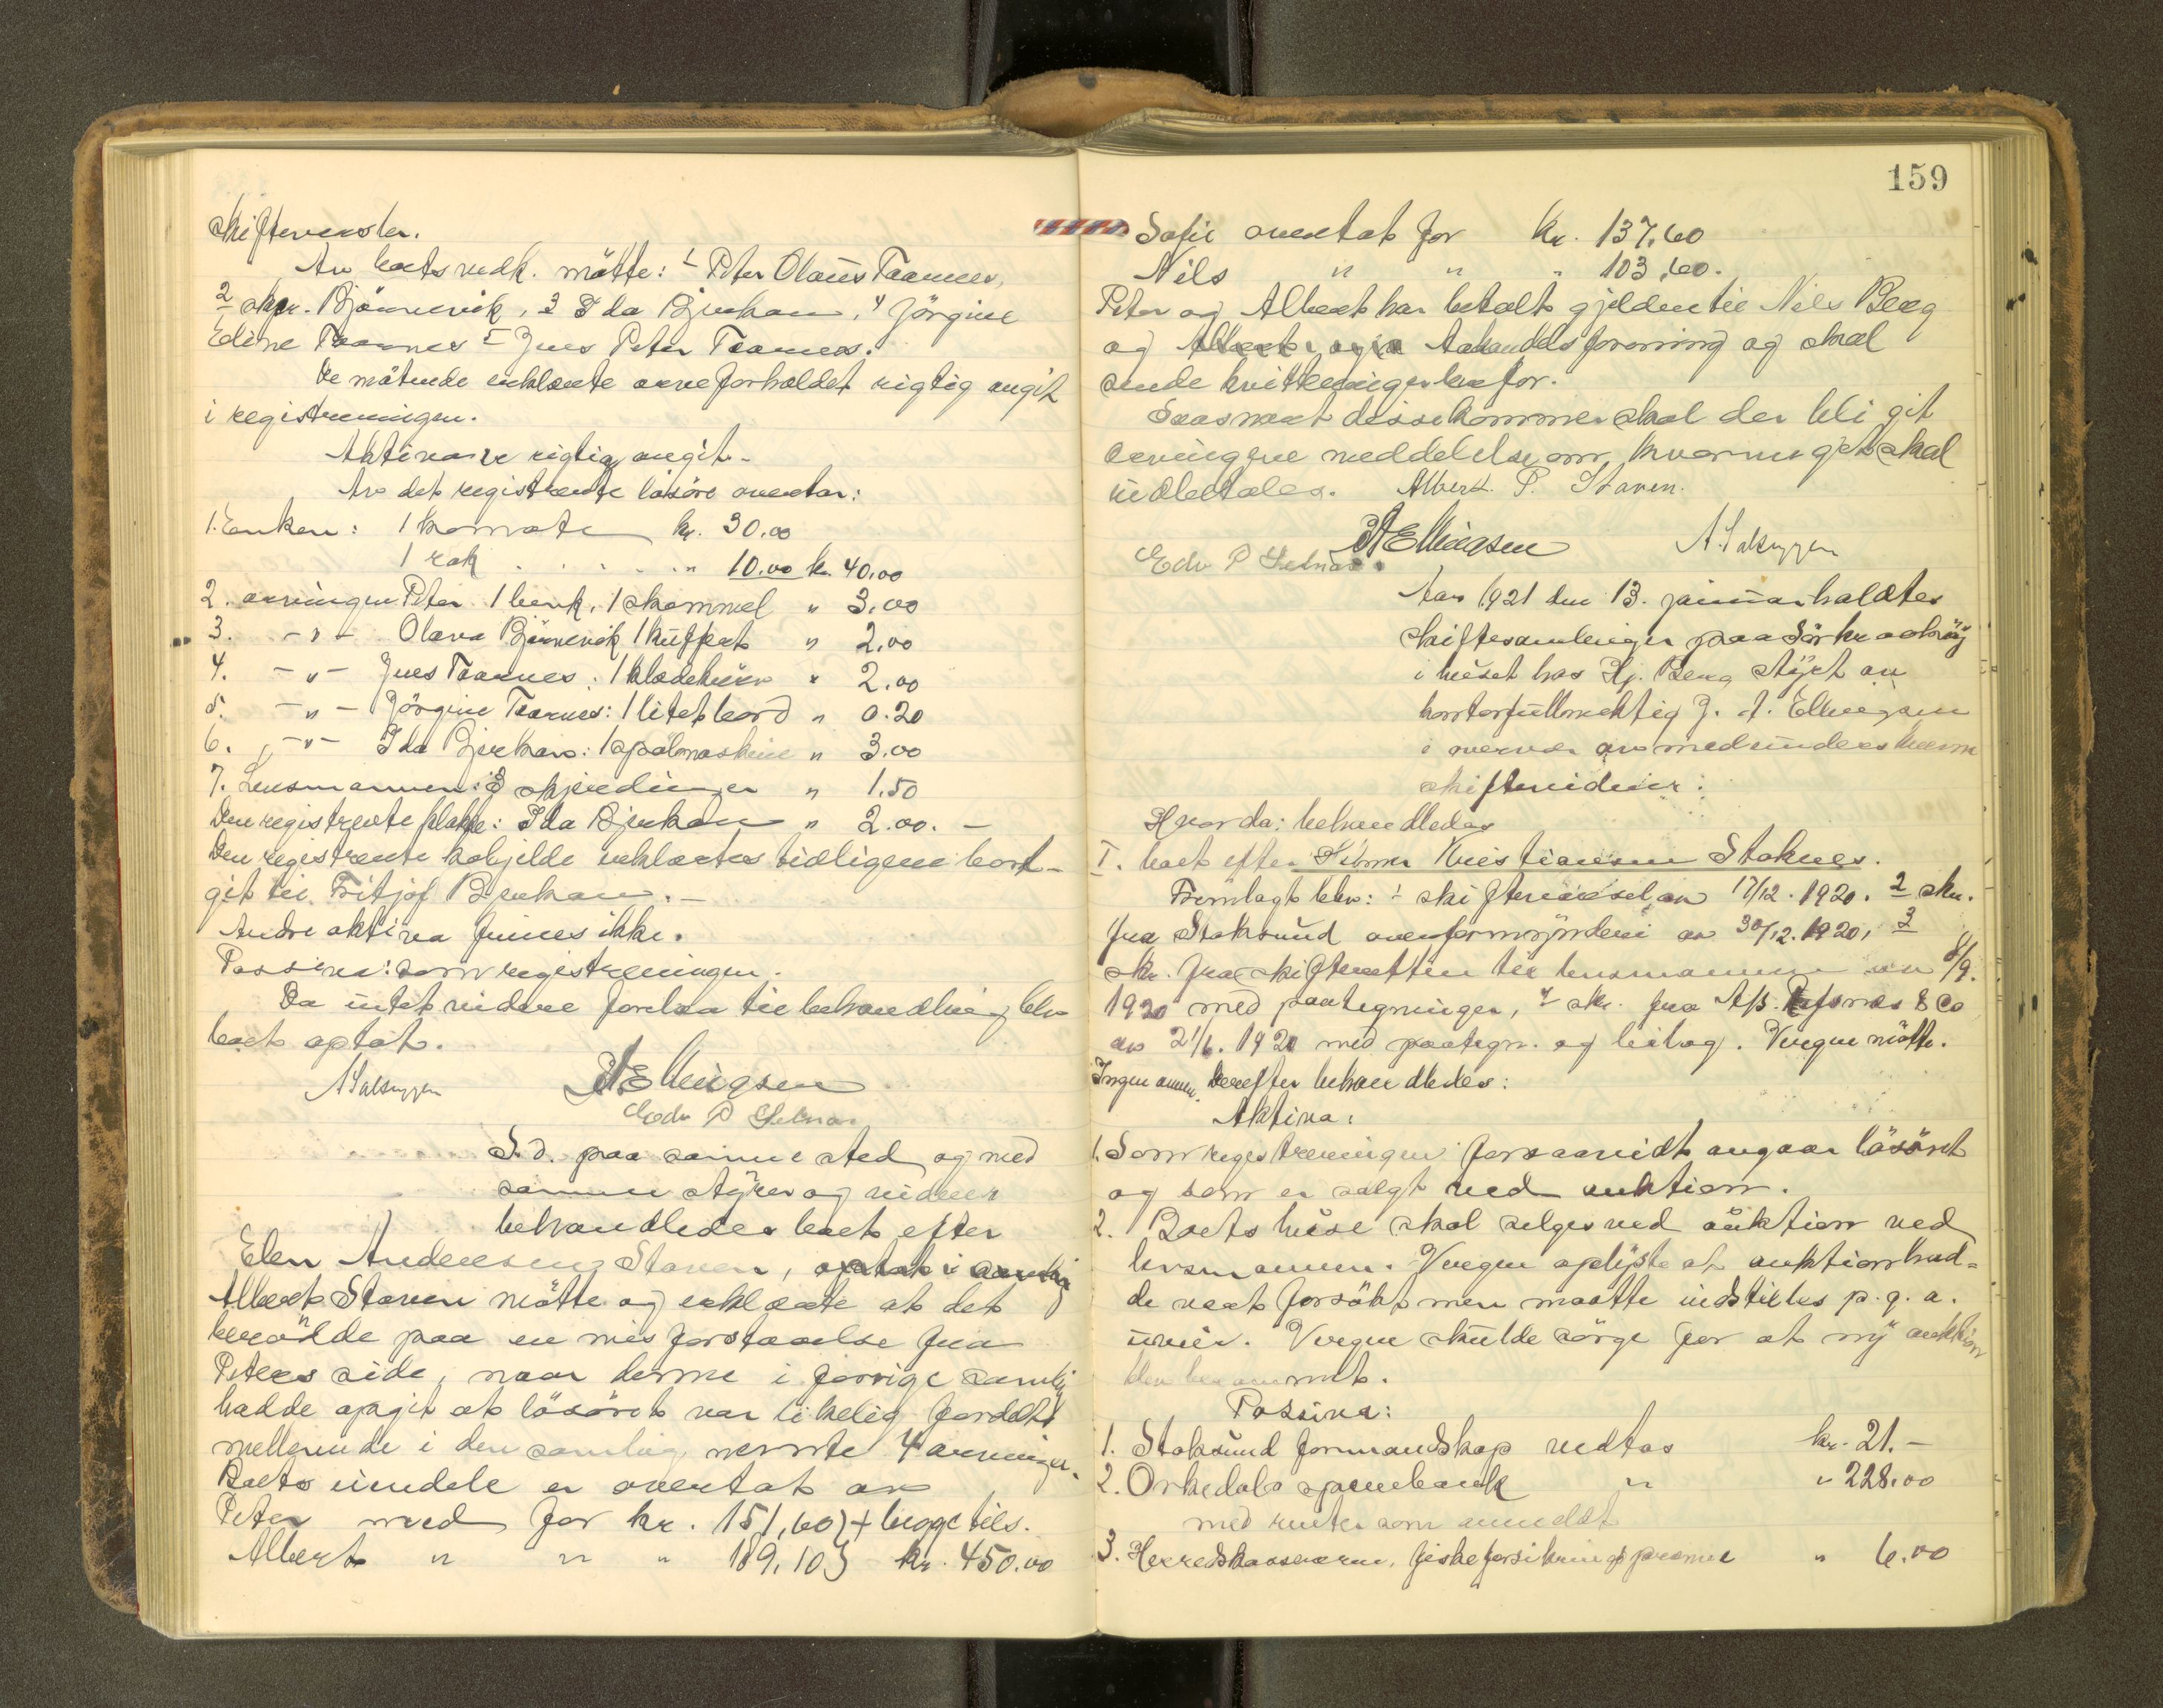 skiftevæsler.
Av boets vedk. mötte: 1 Peter Olaus Taarnes,
2 skpr. Björnevik, 3 Ida Bjerkan, 4 Jörgine
Edine Taarnes 5 Jens Peter Taarnes.
De mötende erklærte arveforholdet rigtig angit
i registreringen.
Aktiva er rigtig angit.
Av det registrerte lösöre overtar:
1. Enken: 1 komode kr. 30.00
1 rok . . . . . " 10.00 kr. 40.00
2. arvingen Peter 1 benk, 1 skammel " 3.00
3. -"- Olava Björnevik 1 kuffert " 2.00
4. -"- Jens Taarnes: 1 klædekurv " 2.00
5. -"- Jörgine Taarnes: 1 litet bord " 0.20
6. -"- Ida Bjerkan: 1 spolmaskine " 3.00
7. Lensmannen: 3 skjredinger " 1.50
Den registrerte flakke: Ida Bjerkan " 2.00. -
Den registrerte kobjelde erklærtes tidligere bort-
git til Fritjof Bjerkan. -
Andre aktiva finnes ikke.
Passiva: som registreringen.
Da intet videre forelaa til behandling blev
boet optat.
A Salsuggen JAEllingsen
Edv P Selnes
S. D. paa samme sted og med
samme styrer og vidner
behandledes boet efter
Elen Andersens Staven, optat i samling
Albert Staven mötte og erklærte at det
berodde paa en misforstaaelse fra
Peters side, naar denne i forrige samling
hadde opgit at lösöret var likelig fordelt
mellem de i den samling nevnte 4 arvinger.
Boets eiendele er overtat av
Peter med for kr. 151,60 } + begge tils.
Albert " " " 189,10 } kr. 450.00
159
Sofie overtat for kr. 137,60
Nils " " " 103,60.
Peter og Albert har betalt gjelden til Nils Berg
og handelsforening og skal
sende kvitteringer herfor.
Saasnart disse kommer skal der bli git
arvingene meddelelse om, hvor meget skal
indbetales. Albert. P. Staven.
JAEllingsen A. Salsuggen
Edv P Selnes
Aar 1921 den 13. januar holdtes
skiftesamlinger paa Sörkraaköy
i huset hos Hj. Berg styrt av
kontorfullmektig J. A. Ellingsen
i overvær av medundertegnede
skiftevidner:
Hvorda: behandledes
I. boet efter Kristiansen Stoknes.
Fremlagt blev: 1 skiftevarsel av 17/12. 1920. 2 skr.
fra Stoksund overformynderi av 30/12. 1920, 3
skr. fra skifteretten til lensmannen av 8/9.
1920 med paategninger, 4 skr. fra A/S. Refsnes & Co
av 21/6. 1920 med paategn. og bilag. Vergen mötte.
Ingen annen. Derefter behandledes:
Aktiva:
1. Som registreringen forsaavidt angaar lösöret
og som er solgt ved auktion.
2. Boets huse skal selges ved auktion ved
lensmannen. Vergen oplyste at auktion had-
de vært forsökt men maatte indstilles p. g. a.
uveir. Vergen skulde sörge for at ny auktion
blev berammet.
Passiva:
1. Stoksund formandskap vedtas kr. 21. -
2. Orkedals sparebank " " 228.00
med renter som anmeldt
3. Herredskassereren, fiskeforsikringspræmie " 6.00